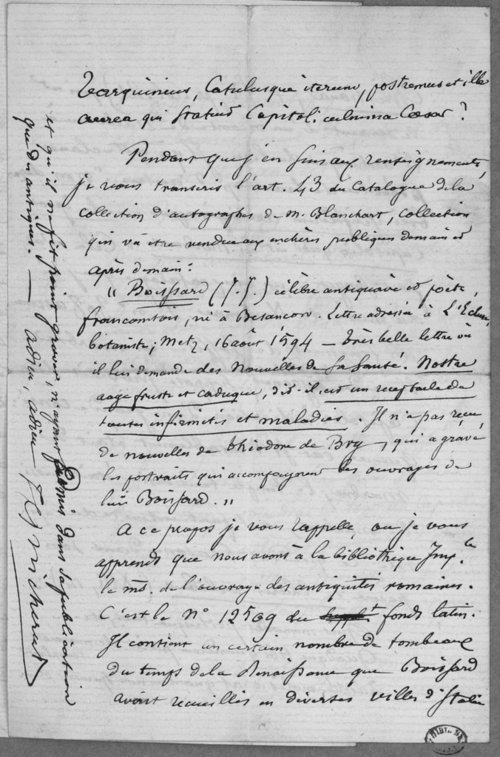 Tarquinius, Catulusque iterum, postremus et ille
aurea qui statuit Capitoli culmina Cæsar?
Pendant que j'en suis aux renseignements,
je vous transcris l'art. 43 du Catalogue de la
collection d'autographes de M. Blanchart, collection
qui va être vendue aux enchères publiques demain et
après demain :
" Boissard (J. J.) célèbre antiquaire et poète
francomtois, né à Besançon. Lettre adressée à L'Ecluse
botaniste ; Metz, 16 août 1594 — très belle lettre où
il lui demande des nouvelles de sa santé. Nostre
aage fruste et caduque, dit-il, est un receptacle de
toutes infirmités et maladies. Il n'a pas reçu
de nouvelles de théodore de Bry, qui a gravé
les portraits qui accompagnent les ouvrages de
lui Boissard. "
A ce propos je vous rappelle, ou je vous
apprends que nous avons à la bibliothèque Imp.le
le ms. de l'ouvrage des antiquités romaines.
C'est le n° 12509 du suppl.t fonds latin.
Il contient un certain nombre de tombeaux
du temps de la Renaissance que Boissard
avait recueillis en diverses villes d'Italie
et qu'il ne fit point graver, n'ayant admis dans sa publication
que du antiques. — adieu, adieu